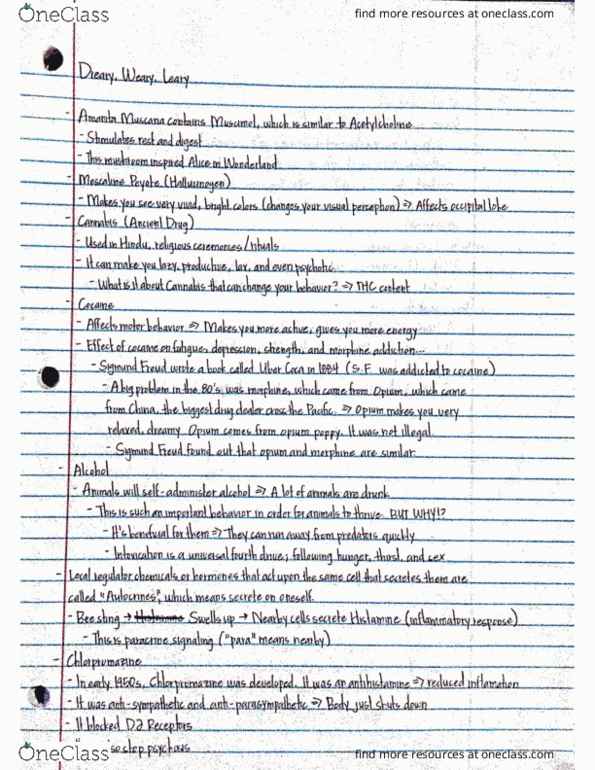 OneClass
find more resources at oneclass.com
Dreary, Weary, Leary
- Amanita Muscaria contains Muscimol, which is similar to Acetylcholine
- Stimulates rest and digest
- This mushroom inspired Alice in Wonderland
- Mescaline Peyote (Hallucinogen)
- Makes you see very vivid, bright colors (changes your visual perception) ⇒ Affects occipital lobe
- Cannabis (Ancient Drug)
- Used in Hindu, religious ceremonies/rituals
- It can make you lazy, productive, lax, and even psychotic
- What is it about Cannabis that can change your behavior? ⇒ THC content
- Cocaine
- Affects motor behavior ⇒ Makes you more active, gives you more energy
- Effect of cocaine on fatigue, depression, strength, and morphine addiction...
- Sigmund Freud wrote a book called Uber Coca in 1884 (S.F. was addicted to cocaine)
- A big problem in the 80's, was morphine, which came from Opium, which came
from China, the biggest drug dealer cross the Pacific. ⇒ Opium makes you very
relaxed, dreamy. Opium comes from opium poppy. It was not illegal.
- Sigmund Freud found out that opium and morphine are similar
- Alcohol
- Animals will self-administer alcohol ⇒ A lot of animals are drunk
- This is such an important behavior in order for animals to thrive. BUT WHY!?
- It's beneficial for them ⇒ They can run away from predators quickly
- Intoxication is a universal fourth drive; following hunger, thirst, and sex
- Local regulator chemicals or hormones that act upon the same cell that secretes them are
called "Autocrines", which means secrete on oneself.
- Bee sting → Histamine Swells up → Nearby cells secrete Histamine (inflammatory response)
- This is paracrine signaling ("para" means nearby)
- Chlorpromazine
- In early 1950s, Chlorpromazine was developed. It was an antihistamine ⇒ reduced inflamation
- It was anti-sympathetic and anti-parasympathetic ⇒ Body just shuts down
- It blocked D2 Receptors
so stop psychosis
OneClass
find more resources at oneclass.com